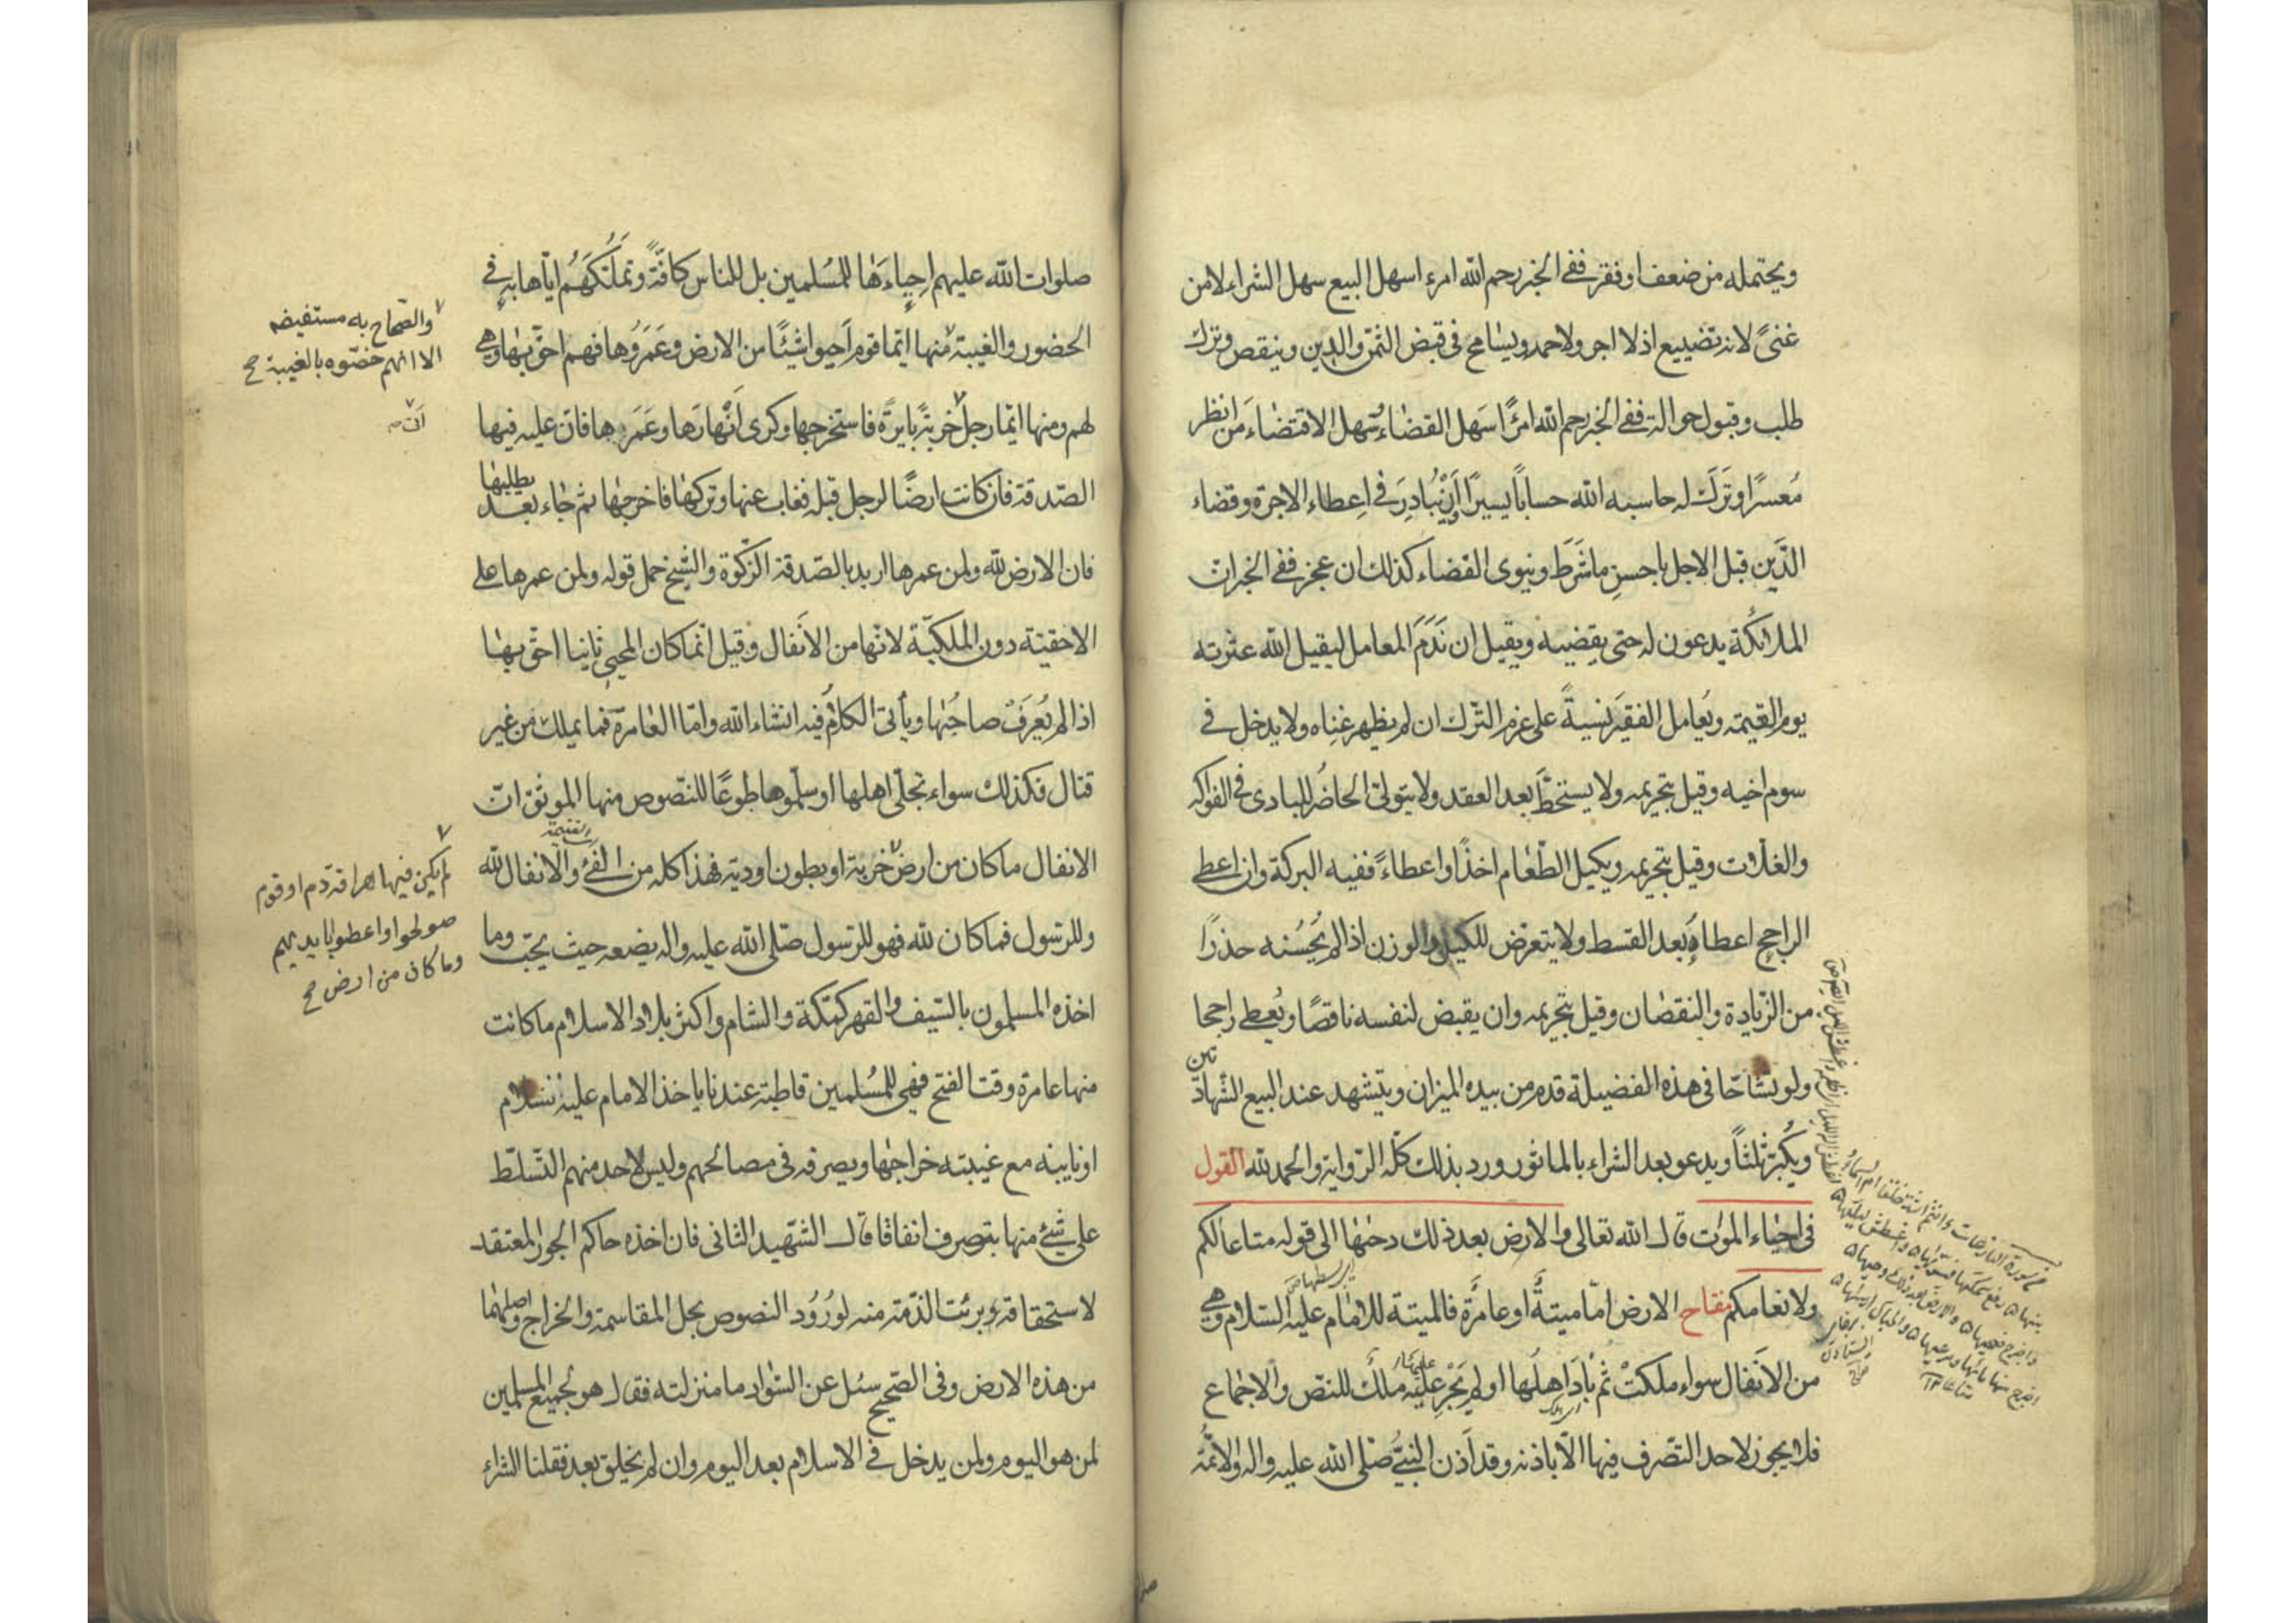 ويحتمله من ضعف او فقر ففي الخبر رحم الله امرء اسهل البيع سهل الشراء لا من
غنىً لانه تضييع اذ لا اجر ولا حمد ويسامح في قبض الثمن والدين وينقص وترك
طلب وقبول حوالة ففي الخبر رحم الله امرًا سَهل القضاء سَهل الاقتضاء من انظر
مُعسرًا وتَرَك له حاسبه الله حسابًا يسيرًا وان يُبادِرَ في اعطاء الاجرة وقضاء
الدَّين قبل الاجل باحسنِ ما شَرَط وينوى القضاء كذلك ان عجز ففي الخبر ان
الملائكة يدعون له حتى يقضيه ويقيل ان نَدَمَ المعامل ليقيل الله عثرته
يوم القيمة ويُعامل الفقيَر نسيةً على عزم الترك ان لم يظهر غِناه ولا يدخل في
سوم اخيه وقيل بتحريمه ولا يستحطّ بعد العقد ولا يتولىّ الحاضُر للبادى في الفواكه
والغلّات وقيل بتحريمه ويكيل الطّعام اخذًا واعطاءً ففيه البركة وان اعطى
الراجح اعطاه بعد القسط ولا يتعرّض للكيل والوزن اذا لم يُحسُنه حذرًا
من الزّيادة والنقصان وقيل بتحريمه وان يقبض لنفسه ناقصًا ويُعطى راجحا
ولو تشاحّا في هذه الفضيلة قدم من بيده الميزان ويتشهد عند البيع الشّهادتين
ويُكبّر ثلثًا ويدعو بعد الشراء بالماثور ورد بذلك كلّه الرّواية والحمد لله القول
في احياء الموات قال الله تعالى والارض بعد ذلك دحيها الى قوله متاعًا لكم
ولانعامكم مفتاح الارض امّا ميتةٌ او عامرةٌ فالميتة للامام عليه السّلام وهي
من الانفال سواء ملكتْ ثم بادَ اهلُها او لم يَجْرِ عليه ملك للنصّ والاجماع
فلا يجوز لاحد التصّرف فيها الّا باذنه وقد اَذن النبيّ صلّى الله عليه واله والائمّة
صلوات الله عليهم احياءَها للمُسلمين بل للناس كافّةً وتملّكَهُم ايّاها به في
الحضور والغيبة منها ايّما قوم اَحيوا شيئًا من الارض وعَمَرُوها فهم احقّ بها وهي
لهم ومنها ايّما رجل خربةً بايرةً فاستخرجها وكرى اَنْهارَها وعَمَرها فان عليه فيها
الصّدقة فان كانت ارضًا لرجل قبله فغاب عنها وتركها فاخرجها ثم جاء بعد يطلبها
فان الارض لله ولمن عمرها اريد بالصّدقة الزكوة والشّيخ حمل قوله ولمن عمرها على
الاحقيّة دون الملكيّة لانّها من الاَنفال وقيل انّما كان المحيى ثانيا احقّ بها
اذا لم يُعرَفْ صاحبُها ويأتى الكلام فيه انشاء الله وامّا العامرة فما يملك من غير
قتال فكذلك سواء تجلّى اهلها او سلّموها طوعًا للنّصوص منها الموثق انّ
الانفال ما كان من ارض خربة او بطون اودية فهذا كله من الفئ والانفال لله
والغنيمة
وللرّسول فما كان لله فهو للرّسول صلّى الله عليه واله يضعه حيث يحبّ وما
اخذه المسلمون بالسّيف والقهر كمكّة والشام واكثر بلاد الاسلام ما كانت
منها عامرة وقت الفتح فهي للمُسلمين قاطبة عندنا ياخذ الامام عليه السّلام
او نايبه مع غيبته خراجها ويصرفه في مصالحهم وليس لاحد منهم التّسلّط
على شئ منها بتصرف اتفاقا قال الشّهيد الثانى فان اخذه حاكم الجور المعتقد
لاستحقاقه برئت الذمّة منه لورُود النصوص بحل المقاسمة والخراج واصلهما
من هذه الارض وفي الصّحيح سئل عن السّواد ما منزلته فقال هو لجميع المسلمين
لمن هو اليوم ولمن يدخل في الاسلام بعد اليوم وان لم يخلق بعد فقلنا الشراء
والصّحاح به مستفيضه
الا انهم خصّوه بالغيبة صح
لم يكن فيها هراقة دم او قوم
صولحوا او اعطوا بايديهم
وما كان من ارض صح